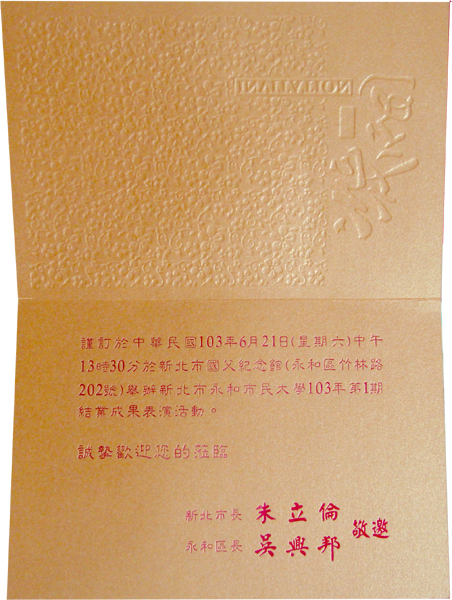 INVITATION
謹訂於中華民國103年6月21日(星期六)中午
13時30分於新北市國父紀念館(永和區竹林路
202號)舉辦新北市永和市民大學103年第1期
結業成果表演活動。
誠摯歡迎您的蒞臨
新北市長 朱立倫
永和區長 吳興邦 敬邀